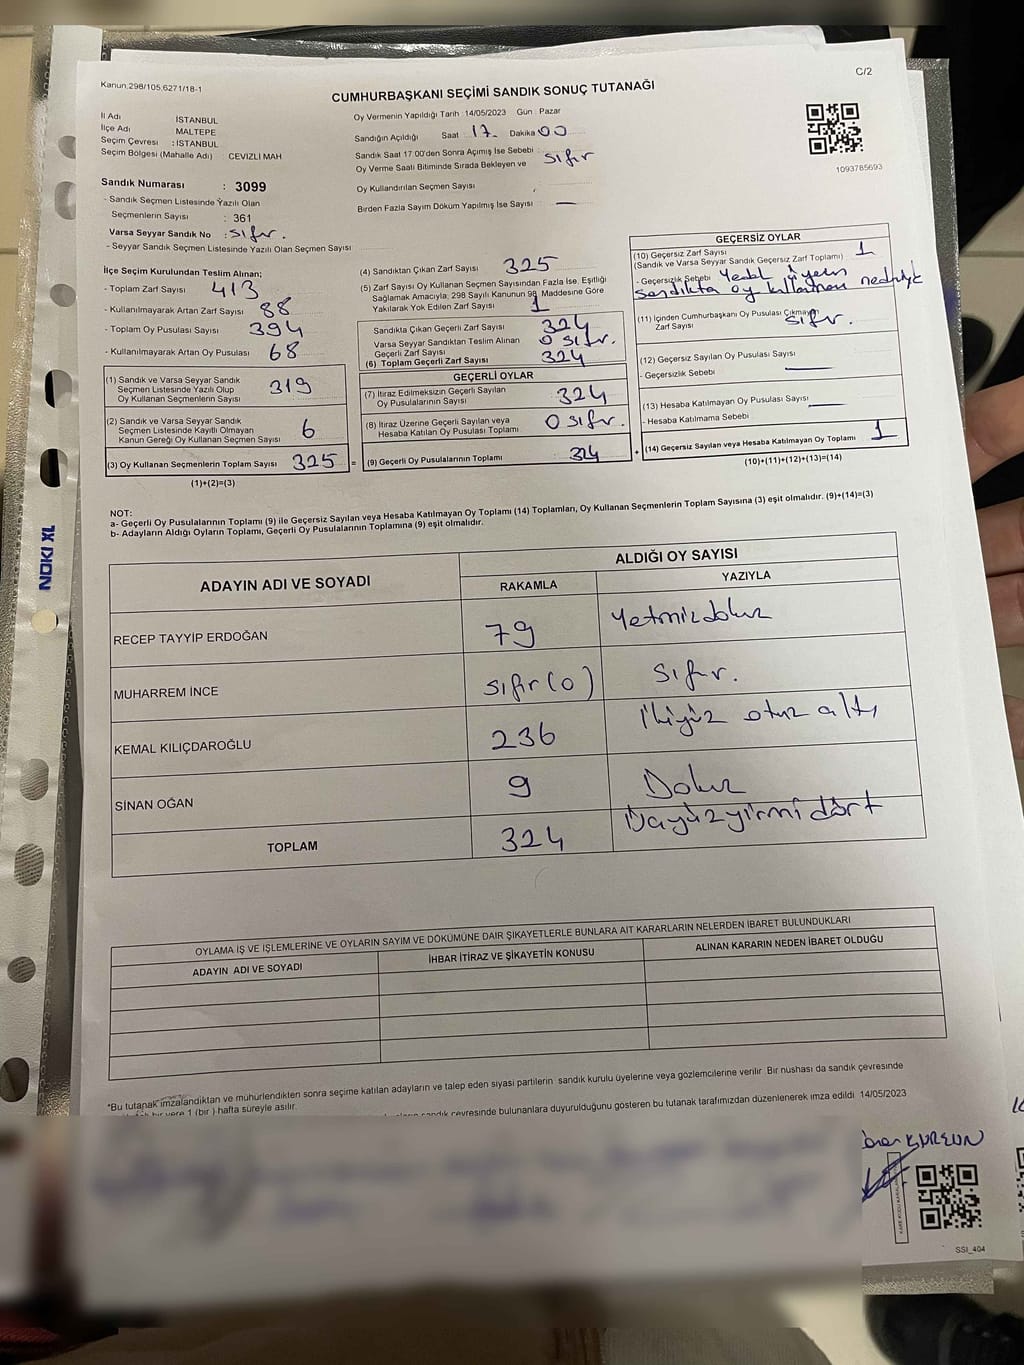 Kanun:298/105,6271/18-1
C/2
CUMHURBAŞKANI SEÇİMİ SANDIK SONUÇ TUTANAĞI
İl Adı İSTANBUL
İlçe Adı MALTEPE
Seçim Çevresi : İSTANBUL
Seçim Bölgesi (Mahalle Adı) CEVIZLI MAH
Oy Vermenin Yapıldığı Tarih 14/05/2023 Gün : Pazar
Sandığın Açıldığı Saat 17 Dakika 00
Sandık Saat 17 00'den Sonra Açımış İse Sebebi
Oy Verme Saati Bitiminde Sırada Bekleyen ve sıfır
Oy Kullandırılan Seçmen Sayısı
Birden Fazla Sayım Döküm Yapılmış İse Sayısı —
1093785693
Sandık Numarası : 3099
- Sandık Seçmen Listesinde Yazılı Olan
Seçmenlerin Sayısı : 361
Varsa Seyyar Sandık No : sıfır.
- Seyyar Sandık Seçmen Listesinde Yazılı Olan Seçmen Sayısı
İlçe Seçim Kurulundan Teslim Alınan;
- Toplam Zarf Sayısı 413
- Kullanılmayarak Artan Zarf Sayısı 88
- Toplam Oy Pusulası Sayısı 394
- Kullanılmayarak Artan Oy Pusulası 68
(1) Sandık ve Varsa Seyyar Sandık
Seçmen Listesinde Yazılı Olup
Oy Kullanan Seçmenlerin Sayısı 319
(2) Sandık ve Varsa Seyyar Sandık
Seçmen Listesinde Kayıtlı Olmayan
Kanun Gereği Oy Kullanan Seçmen Sayısı 6
(3) Oy Kullanan Seçmenlerin Toplam Sayısı 325 =
(1)+(2)=(3)
(4) Sandıktan Çıkan Zarf Sayısı 325
(5) Zarf Sayısı Oy Kullanan Seçmen Sayısından Fazla İse, Eşitliği
Sağlamak Amacıyla, 298 Sayılı Kanunun 98. Maddesine Göre
Yakılarak Yok Edilen Zarf Sayısı 1
Sandıkta Çıkan Geçerli Zarf Sayısı 324
Varsa Seyyar Sandıktan Teslim Alınan
Geçerli Zarf Sayısı 0 sıfır.
(6) Toplam Geçerli Zarf Sayısı 324
GEÇERLİ OYLAR
(7) İtiraz Edilmeksizin Geçerli Sayılan
Oy Pusulalarının Sayısı 324
(8) İtiraz Üzerine Geçerli Sayılan veya
Hesaba Katılan Oy Pusulası Toplamı 0 sıfır.
(9) Geçerli Oy Pusulalarının Toplamı 324 +
GEÇERSİZ OYLAR
(10) Geçersiz Zarf Sayısı
(Sandık ve Varsa Seyyar Sandık Geçersiz Zarf Toplamı) 1
- Geçersizlik Sebebi Yedek üyenin
sandıkta oy kullanması nedeniyle
(11) İçinden Cumhurbaşkanı Oy Pusulası Çıkmayan
Zarf Sayısı sıfır.
(12) Geçersiz Sayılan Oy Pusulası Sayısı
- Geçersizlik Sebebi —
(13) Hesaba Katılmayan Oy Pusulası Sayısı —
- Hesaba Katılmama Sebebi
(14) Geçersiz Sayılan veya Hesaba Katılmayan Oy Toplamı 1
(10)+(11)+(12)+(13)=(14)
NOT:
a- Geçerli Oy Pusulalarının Toplamı (9) ile Geçersiz Sayılan veya Hesaba Katılmayan Oy Toplamı (14) Toplamları, Oy Kullanan Seçmenlerin Toplam Sayısına (3) eşit olmalıdır. (9)+(14)=(3)
b- Adayların Aldığı Oyların Toplamı, Geçerli Oy Pusulalarının Toplamına (9) eşit olmalıdır.
ADAYIN ADI VE SOYADI ALDIĞI OY SAYISI
RAKAMLA YAZIYLA
RECEP TAYYİP ERDOĞAN 79 Yetmişdokuz
MUHARREM İNCE sıfır (0) sıfır.
KEMAL KILIÇDAROĞLU 236 ikiyüz otuz altı
SİNAN OĞAN 9 Dokuz
TOPLAM 324 Üçyüzyirmi dört
OYLAMA İŞ VE İŞLEMLERİNE VE OYLARIN SAYIM VE DÖKÜMÜNE DAİR ŞİKAYETLERLE BUNLARA AİT KARARLARIN NELERDEN İBARET BULUNDUKLARI
ADAYIN ADI VE SOYADI İHBAR İTİRAZ VE ŞİKAYETİN KONUSU ALINAN KARARIN NEDEN İBARET OLDUĞU
*Bu tutanak imzalandıktan ve mühürlendikten sonra seçime katılan adayların ve talep eden siyasi partilerin sandık kurulu üyelerine veya gözlemcilerine verilir Bir nushası da sandık çevresinde
bir yere 1 (bir ) hafta süreyle asılır.
sandık çevresinde bulunanlara duyurulduğunu gösteren bu tutanak tarafımızdan düzenlenerek imza edildi 14/05/2023
SSI_404
NOKI XL